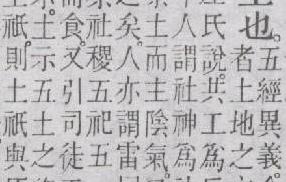 也。
五經異義
者土地之
氏說共工為
人謂社神為
土而主陰氣
矣。人亦謂雷
社稷五祀五
食。又引司徒
土示五土之
祇。則土祇與